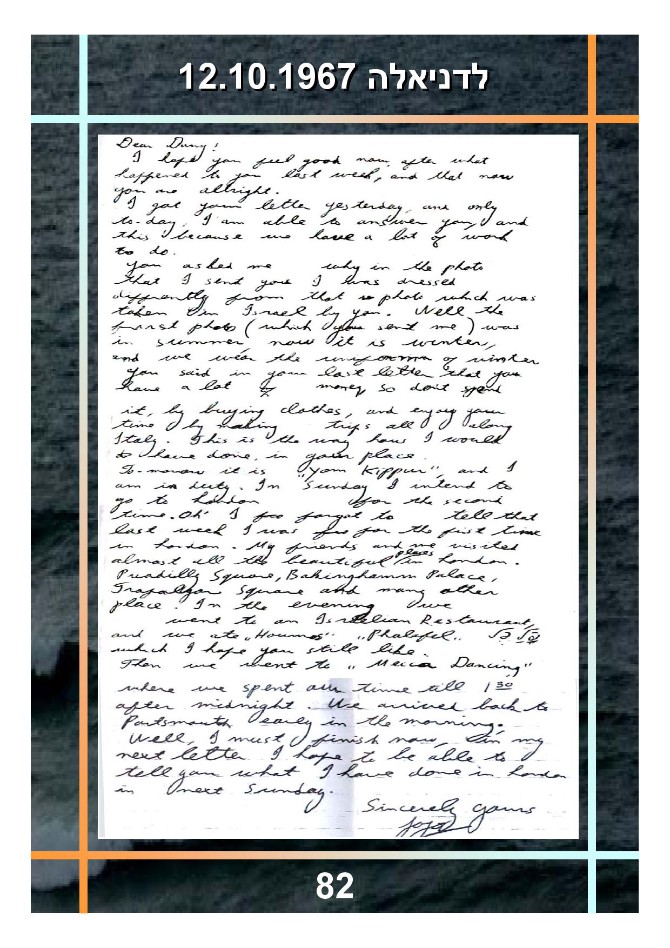 לדניאלה 12.10.1967
Dear Dany!
I hope you feel good now, after what
happened to you last week, and that now
you are allright.
I got your letter yesterday, and only
to-day, I am able to answer you, and
this because we have a lot of work
to do.
You asked me why in the photo
that I send you I was dressed
differently from that photo which was
taken in Israel by you. Well the
first photo (which you sent me) was
in summer, now it is winter,
and we wear the uniform of winter
You said in your last letter that you
have a lot of money so don't spend
it, by buying clothes, and enjoy your
time by making trips all along
Italy. This is the way how I would
to have done, in your place.
To-morow it is "Yom Kippur", and I
am in duty. In Sunday I intend to
go to London for the second
time. Oh! I forgot to tell that
last week I was for the first time
in London. My friends and me visited
almost all the beautiful places in London.
Picadilly Square, Bakinghamm Palace,
Trafalgar Square and many other
place. In the evening we
went to an Israelian Restaurant,
and we ate "Houmos" "Phalafel"
which I hope you still like.
Then we went to "Mecca Dancing"
where we spent our time till 1 30
after midnight. We arrived back to
Portsmouth early in the morning.
Well, I must finish now, in my
next letter I hope to be able to
tell you what I have done in London
in next Sunday.
Sincerely yours
82